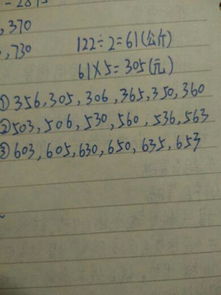 ,370
,730
122÷2=61(公斤)
61×5=305(元)
①356,305,306,365,350,360
②503,506,530,560,536,563
③603,605,630,650,635,653